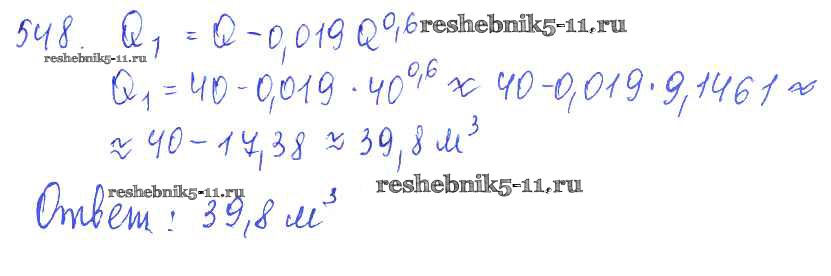 548. Q₁ = Q - 0,019 Q^0,6 reshebnik5-11.ru
reshebnik5-11.ru
Q₁ = 40 - 0,019 · 40^0,6 ≈ 40 - 0,019 · 9,1461 ≈
≈ 40 - 17,38 ≈ 39,8 м³
reshebnik5-11.ru reshebnik5-11.ru
Ответ: 39,8 м³